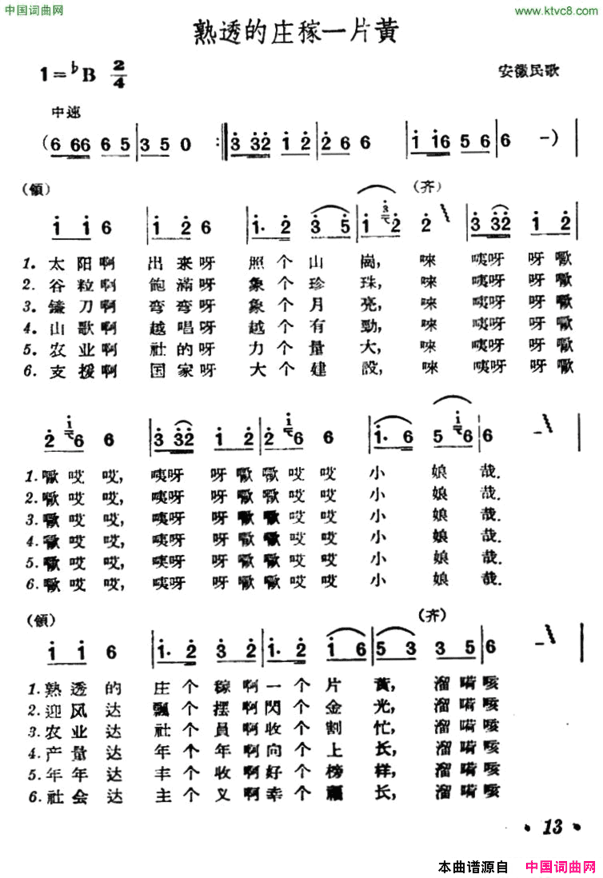 中国词曲网
www.ktvc8.com
熟透的庄稼一片黃
1=♭B 2/4
安徽民歌
中速
(6 66 6 5 | 3 5 0 :‖ 3 32 1 2 | 2 6 6 | 1 16 5 6 | 6 -) |
(領) (齐)
1 1 6 | 1 2 6 | 1· 2 | 3 5 | 1 2 | 2 | 3 32 1 2
1. 太阳啊 出来呀 照个山崗, 唻 咦呀呀噉
2. 谷粒啊 飽滿呀 象个珍珠, 唻 咦呀呀噉
3. 镰刀啊 弯弯呀 象个月亮, 唻 咦呀呀噉
4. 山歌啊 越唱呀 越个有勁, 唻 咦呀呀噉
5. 农业啊 社的呀 力个量大, 唻 咦呀呀噉
6. 支援啊 国家呀 大个建設, 唻 咦呀呀噉
2 1 6 6 | 3 32 1 2 | 2 1 6 6 | 1· 6 | 5 1 6 | 6 -
1. 噉哎哎, 咦呀呀噉噉哎哎小娘哉.
2. 噉哎哎, 咦呀呀噉噉哎哎小娘哉.
3. 噉哎哎, 咦呀呀噉噉哎哎小娘哉.
4. 噉哎哎, 咦呀呀噉噉哎哎小娘哉.
5. 噉哎哎, 咦呀呀噉噉哎哎小娘哉.
6. 噉哎哎, 咦呀呀噉噉哎哎小娘哉.
(領) (齐)
1 1 6 | 1· 2 | 3· 2 | 1· 2 | 1 6 | 5 3 | 3 5 | 6 -
1. 熟透的 庄个稼啊一个片黃, 溜嗬咳
2. 迎风达 飄个摆啊閃个金光, 溜嗬咳
3. 农业达 社个員啊收个割忙, 溜嗬咳
4. 产量达 年个年啊向个上长, 溜嗬咳
5. 年年达 丰个收啊好个榜样, 溜嗬咳
6. 社会达 主个义啊幸个福长, 溜嗬咳
· 13 ·
本曲谱源自 中国词曲网